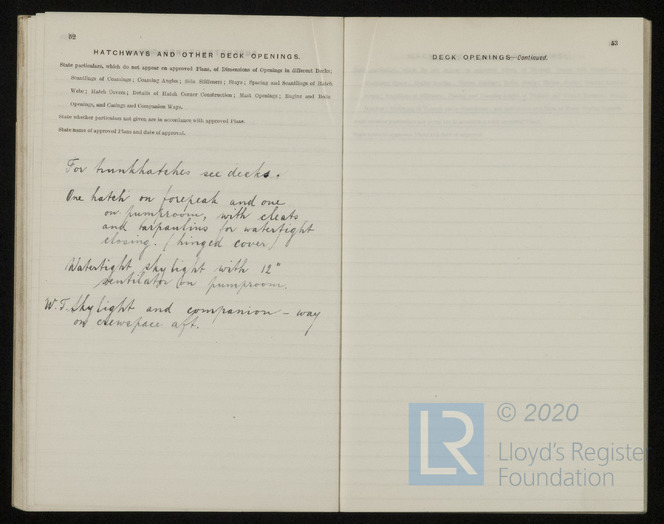 52
HATCHWAYS AND OTHER DECK OPENINGS.
State particulars, which do not appear on approved Plans, of Dimensions of Openings in different Decks;
Scantlings of Coamings; Coaming Angles; Side Stiffeners; Stays; Spacing and Scantlings of Hatch
Webs; Hatch Covers; Details of Hatch Corner Construction; Mast Openings; Engine and Boiler
Openings, and Casings and Companion Ways.
State whether particulars not given are in accordance with approved Plans.
State name of approved Plans and date of approval.
For trunkhatches see decks.
One hatch on forepeak and one
on pumproom, with cleats
and tarpaulins for watertight
closing. (hinged cover)
Watertight skylight with 12"
ventilator on pumproom.
W.T. Skylight and companion - way
on crewspace aft.
53
DECK OPENINGS—Continued.
LR
© 2020
Lloyd's Register
Foundation